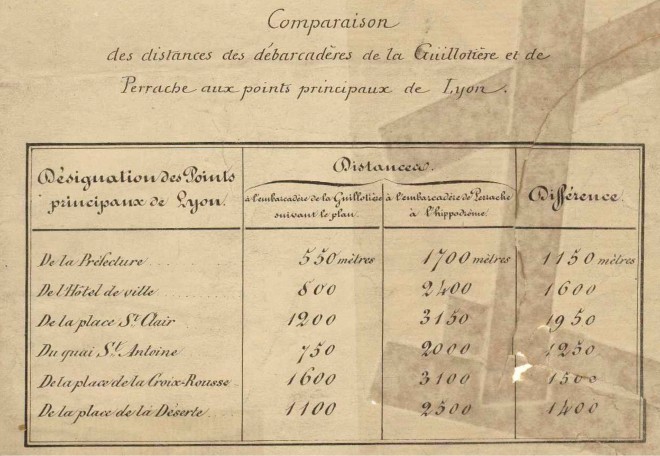 Comparaison
des distances des débarcadères de la Guillotière et de
Perrache aux points principaux de Lyon.
Désignation des Points principaux de Lyon.
Distances.
à l'embarcadère de la Guillotière suivant le plan.
à l'embarcadère de Perrache à l'hippodrôme.
Différence.
De la Préfecture 550 mètres 1700 mètres 1150 mètres
De l'Hôtel de ville 800 2400 1600
De la place St Clair 1200 3150 1950
Du quai St Antoine 750 2000 1250
De la place de la Croix-Rousse 1600 3100 1500
De la place de la Déserte 1100 2500 1400